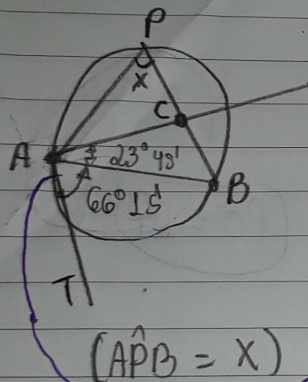 P
X
C
A 23° 45'
66° 15' B
T
(AP̂B = X)